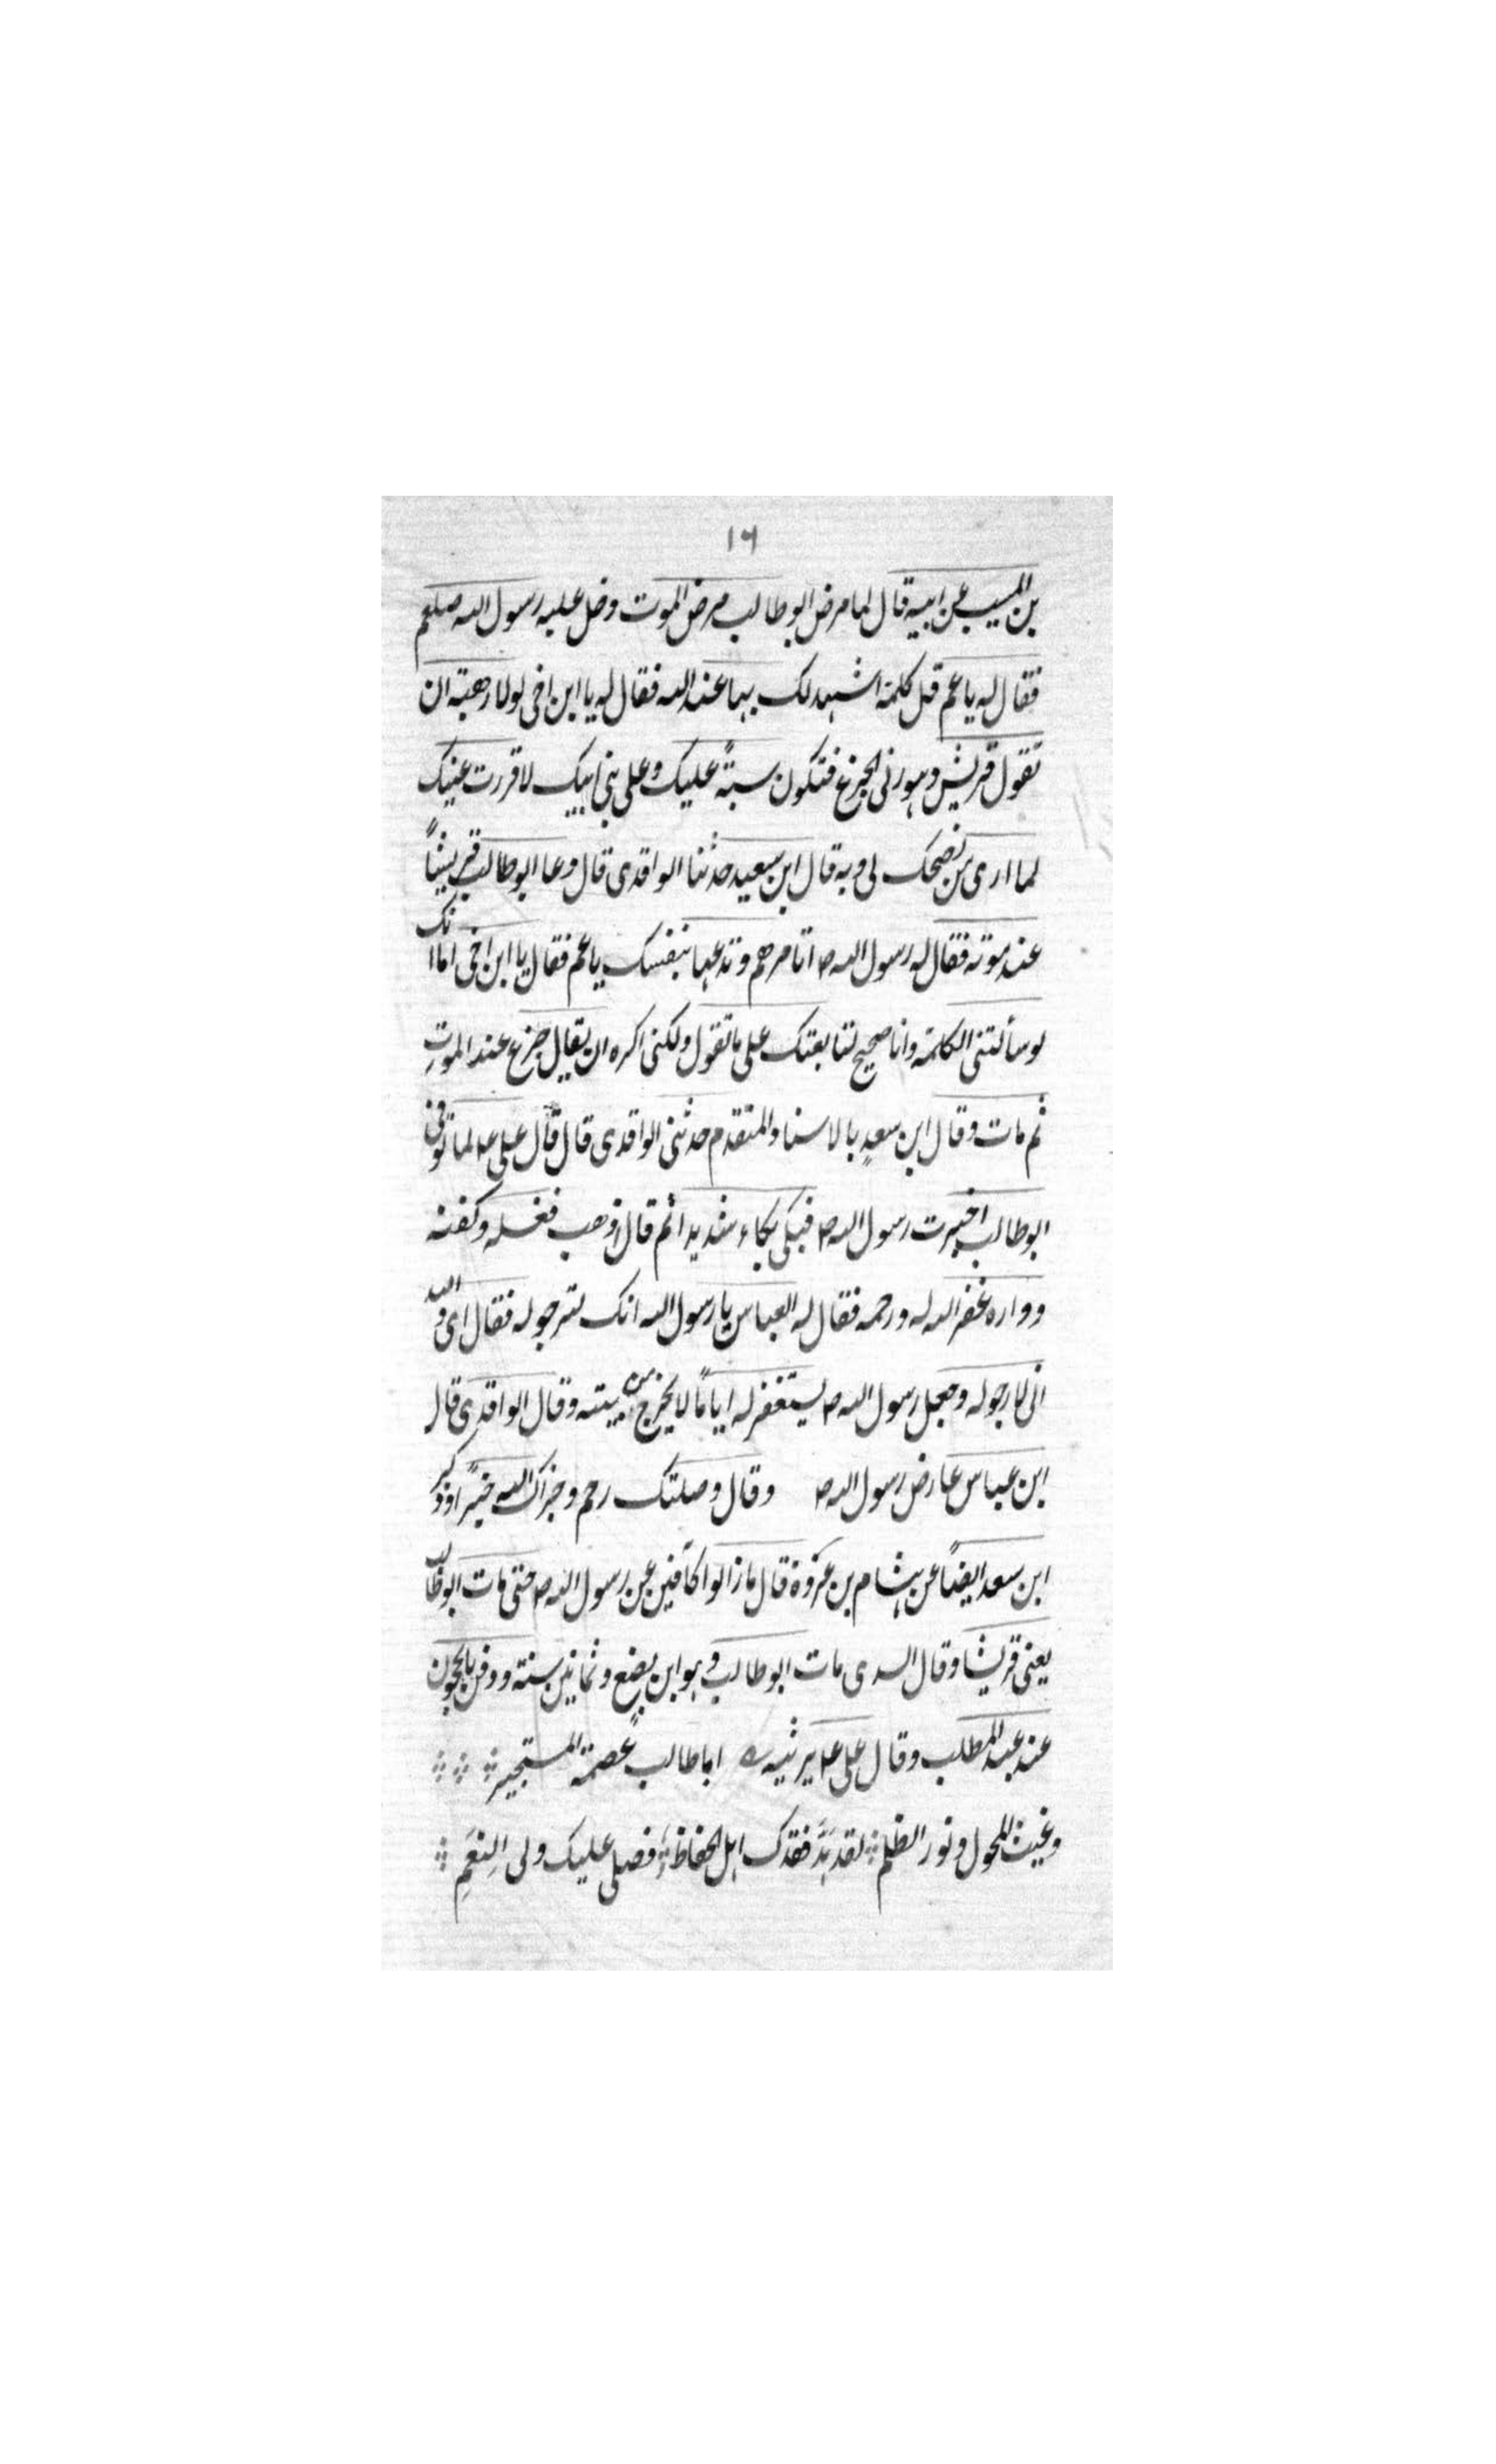 ١٦
بن المسيب عن ابيه قال لما مرض ابو طالب مرض الموت دخل عليه رسول الله صلعم
فقال له يا عم قل كلمة اشهد لك بها عند الله فقال له يا ابن اخى لولا رهبة ان
تقول قريش وهورنى الجزع فتكون سبةً عليك وعلى بنى ابيك لاقررت عينيك
لما ارى من نصحك لى وبه قال ابن سعيد حدثنا الواقدى قال دعا ابو طالب قريشاً
عند موته فقال له رسول الله ص اتامرهم وتدعها بنفسك يا عم فقال يا ابن اخى اما انك
لو سألتنى الكلمة وانا صحيح لتابعتك على ما تقول ولكنى اكره ان يقال جزع عند الموت
ثم مات وقال ابن سعدٍ بالاسناد المتقدم حدثنى الواقدى قال قال على ع لما توفى
ابو طالب اخبرت رسول الله ص فبكى بكاء شديدا ثم قال اذهب فغسله وكفنه
وواره غفر الله له ورحمه فقال له العباس يا رسول الله انك لترجو له فقال اى والله
انى لارجو له وجعل رسول الله ص يستغفر له اياماً لا يخرج من بيته وقال الواقدى قال
ابن عباس عارض رسول الله ص وقال وصلتك رحم وجزاك الله خيراً وذكر
ابن سعد ايضاً عن هشام بن عروة قال ما زالوا كافين عن رسول الله ص حتى مات ابو طالب
يعنى قريشا وقال السدى مات ابو طالب وهو ابن بضع وثمانين سنة ودفن بالحجون
عند عبد المطلب وقال على ع يرثيه ابا طالب عصمة المستجير
وغيث المحول ونور الظلم لقد هَدَّ فقدك اهل الحفاظ فصلى عليك ولى النِعَمِ